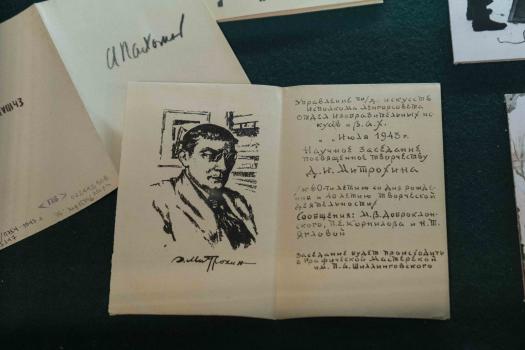 А Пахомов
Д. Митрохин
Управление по/д. искусств
Исполкома Ленгорсовета
Отдел изобразительных ис-
кусств
Июля 1943 г.
Научное заседание
посвященное творчеству
Д. И. Митрохина
/к 60-тилетию со дня рожде
ния и 40 летию творческой
деятельности/
Сообщения: М. В. Доброклон-
ского, П. Е. Корнилова и
Заседание будет происходить
в Графической мастерской
им. П. А. Шиллинговского